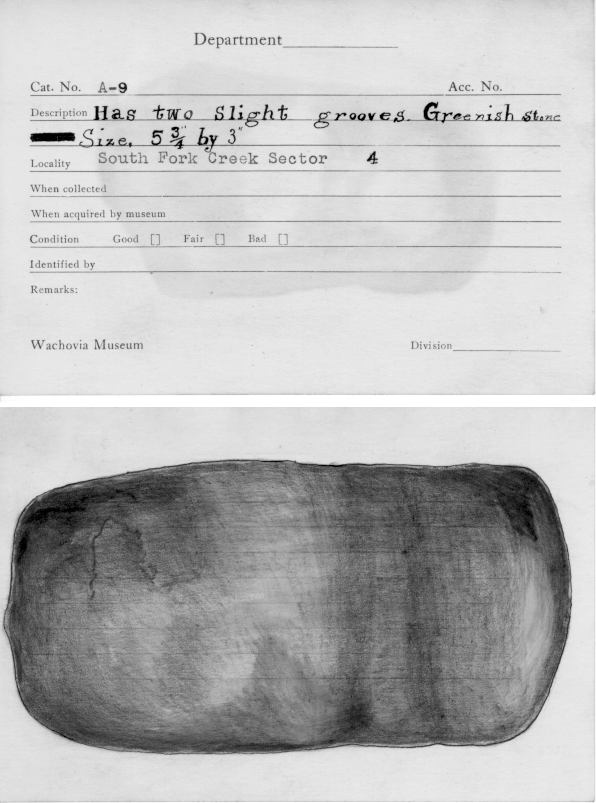 Department
Cat. No. A-9 Acc. No.
Description Has two slight grooves. Greenish stone
Size. 5 3/4" by 3"
Locality South Fork Creek Sector 4
When collected
When acquired by museum
Condition Good [] Fair [] Bad []
Identified by
Remarks:
Wachovia Museum Division